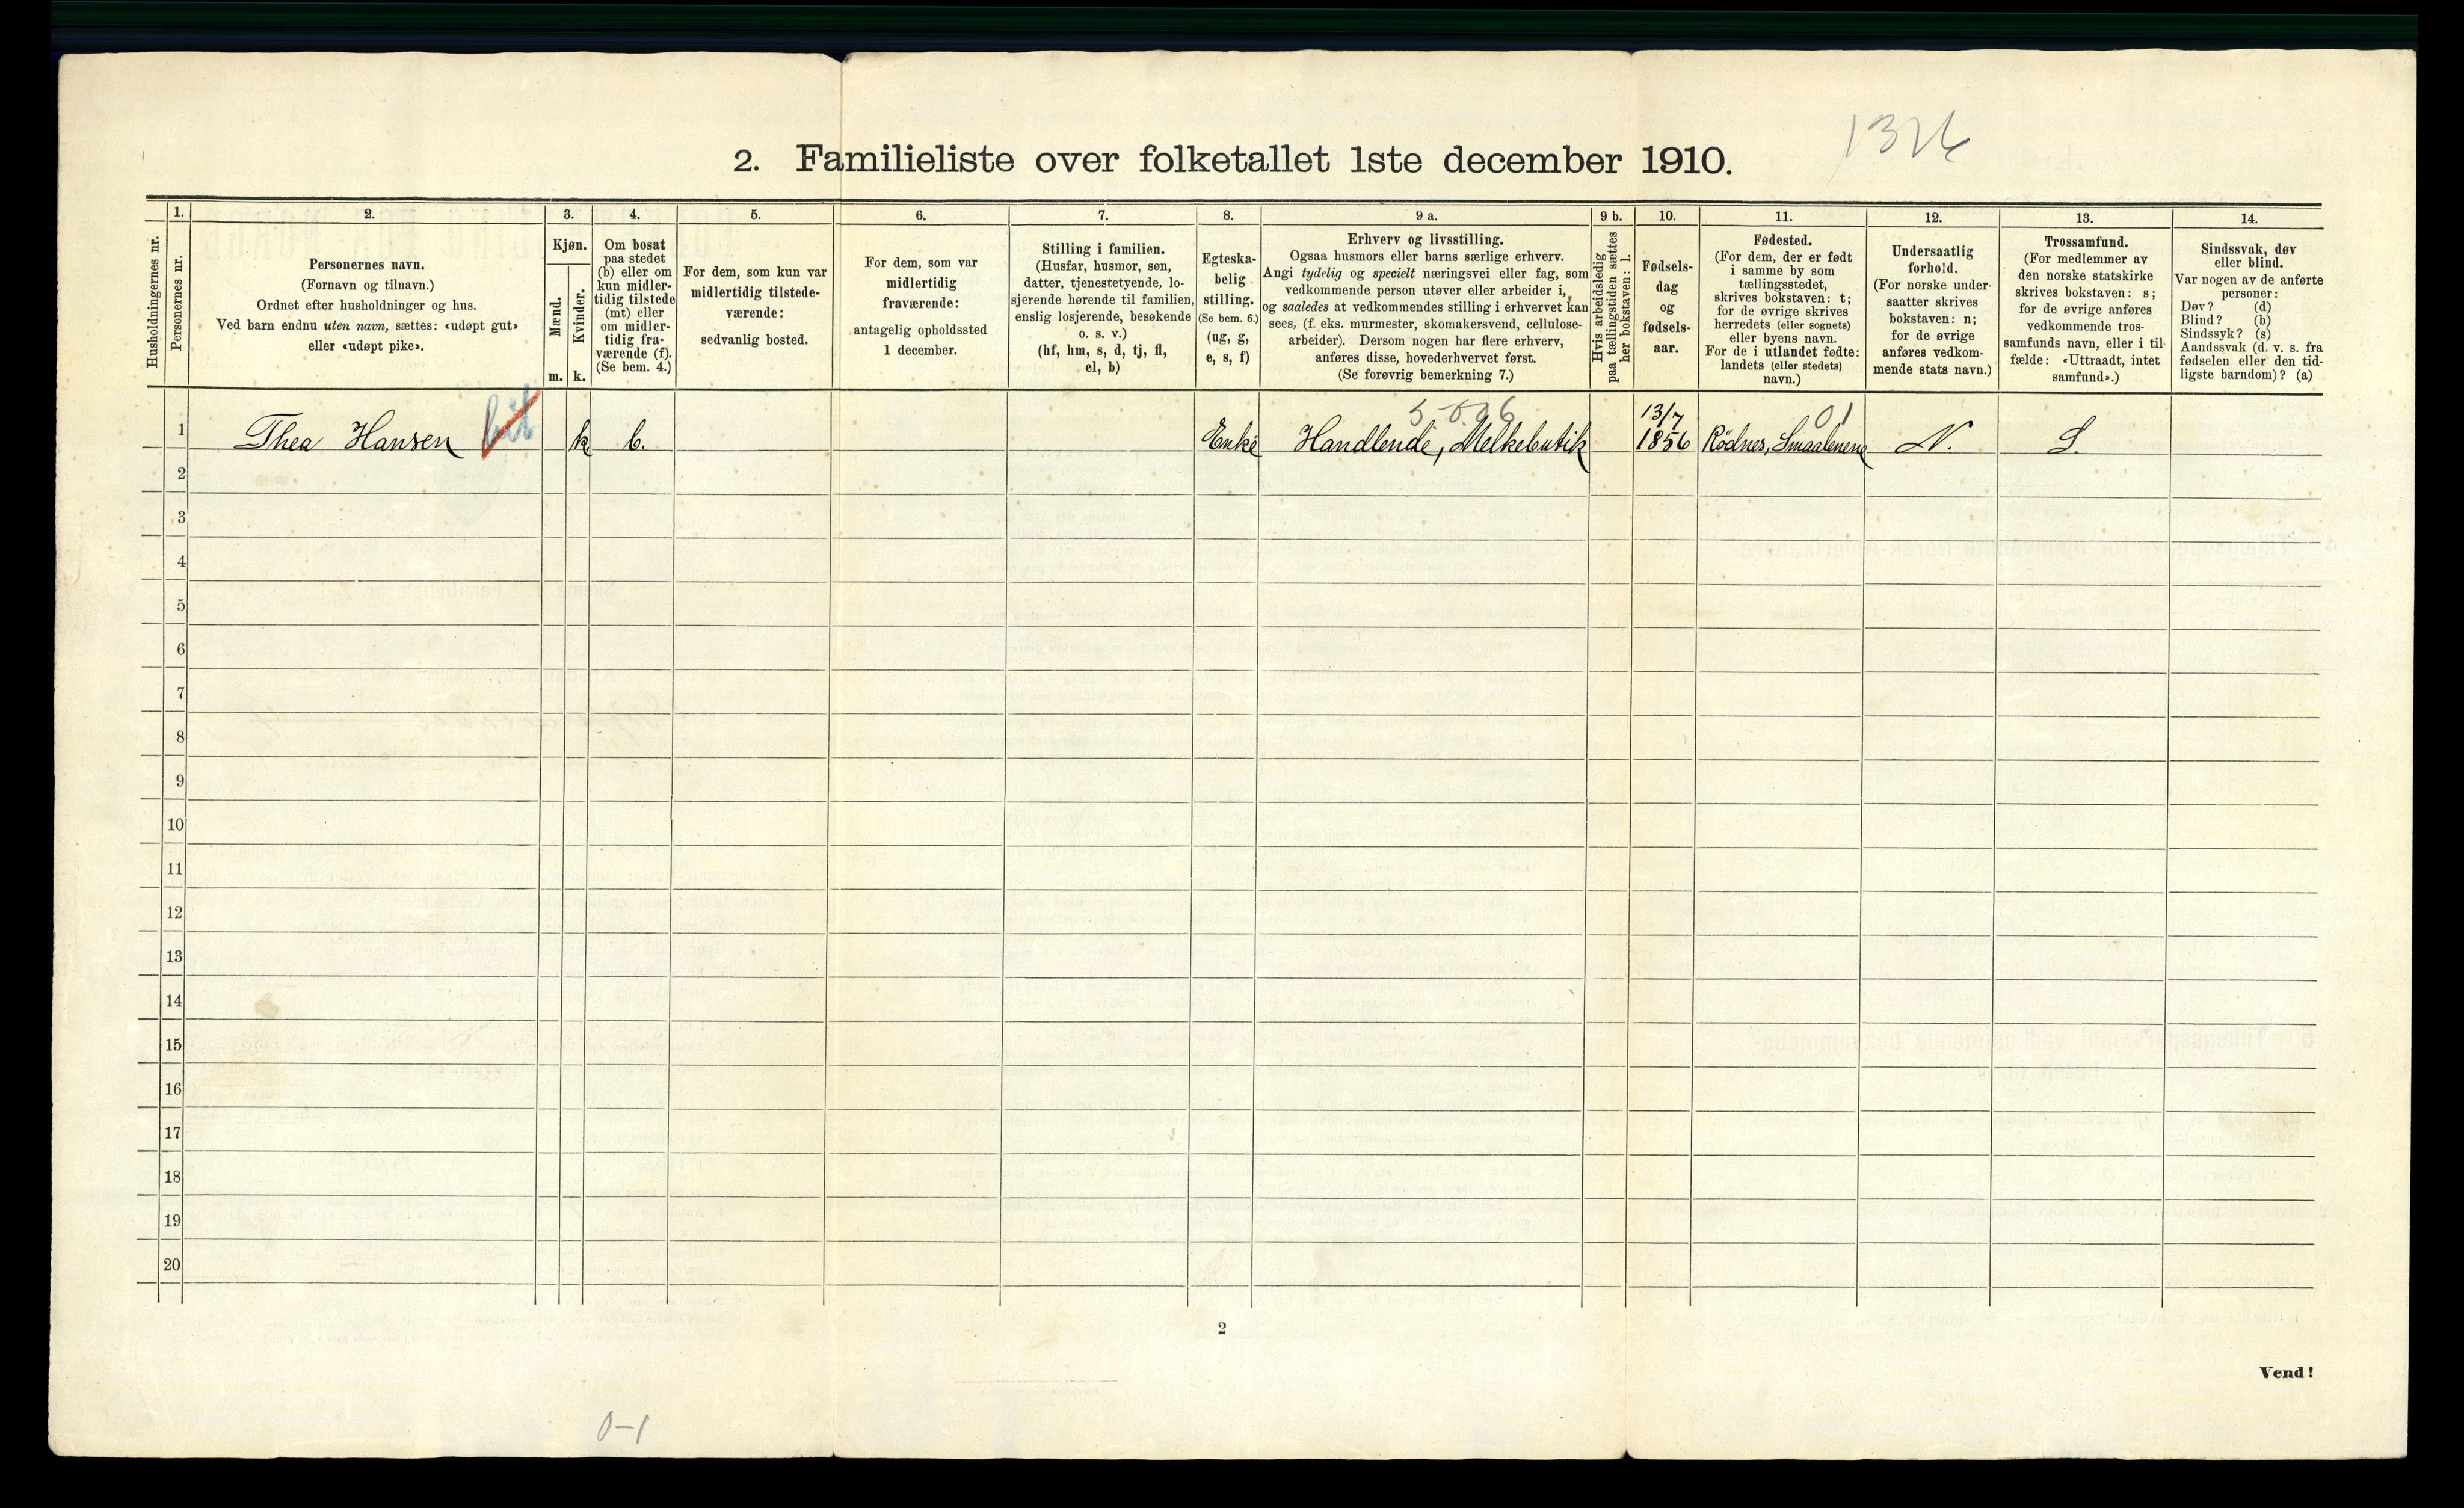 1326
2. Familieliste over folketallet 1ste december 1910.
Husholdningernes nr.
1.
Personernes nr.
2.
Personernes navn.
(Fornavn og tilnavn.)
Ordnet efter husholdninger og hus.
Ved barn endnu uten navn, sættes: «udøpt gut»
eller «udøpt pike».
3.
Kjøn.
Mænd.
Kvinder.
m.
k.
4.
Om bosat
paa stedet
(b) eller om
kun midler-
tidig tilstede
(mt) eller
om midler-
tidig fra-
værende (f).
(Se bem. 4.)
5.
For dem, som kun var
midlertidig tilstede-
værende:
sedvanlig bosted.
6.
For dem, som var
midlertidig
fraværende:
antagelig opholdssted
1 december.
7.
Stilling i familien.
(Husfar, husmor, søn,
datter, tjenestetyende, lo-
sjerende hørende til familien,
enslig losjerende, besøkende
o. s. v.)
(hf, hm, s, d, tj, fl,
el, b)
8.
Egteska-
belig
stilling.
(Se bem. 6.)
(ug, g,
e, s, f)
9 a.
Erhverv og livsstilling.
Ogsaa husmors eller barns særlige erhverv.
Angi tydelig og specielt næringsvei eller fag, som
vedkommende person utøver eller arbeider i,
og saaledes at vedkommendes stilling i erhvervet kan
sees, (f. eks. murmester, skomakersvend, cellulose-
arbeider). Dersom nogen har flere erhverv,
anføres disse, hovederhvervet først.
(Se forøvrig bemerkning 7.)
9 b.
Hvis arbeidsledig
paa tællingstiden sættes
her bokstaven: l.
10.
Fødsels-
dag
og
fødsels-
aar.
11.
Fødested.
(For dem, der er født
i samme by som
tællingsstedet,
skrives bokstaven: t;
for de øvrige skrives
herredets (eller sognets)
eller byens navn.
For de i utlandet fødte:
landets (eller stedets)
navn.)
12.
Undersaatlig
forhold.
(For norske under-
saatter skrives
bokstaven: n;
for de øvrige
anføres vedkom-
mende stats navn.)
13.
Trossamfund.
(For medlemmer av
den norske statskirke
skrives bokstaven: s;
for de øvrige anføres
vedkommende tros-
samfunds navn, eller i til-
fælde: «Uttraadt, intet
samfund».)
14.
Sindssvak, døv
eller blind.
Var nogen av de anførte
personer:
Døv? (d)
Blind? (b)
Sindssyk? (s)
Aandssvak (d. v. s. fra
fødselen eller den tid-
ligste barndom)? (a)
1 Thea Hansen k b. Enke Handlende, Melkebutik 13/7 1856 Rødnes, Smaalenene N. S.
01
2
3
4
5
6
7
8
9
10
11
12
13
14
15
16
17
18
19
20
2
Vend!
0-1